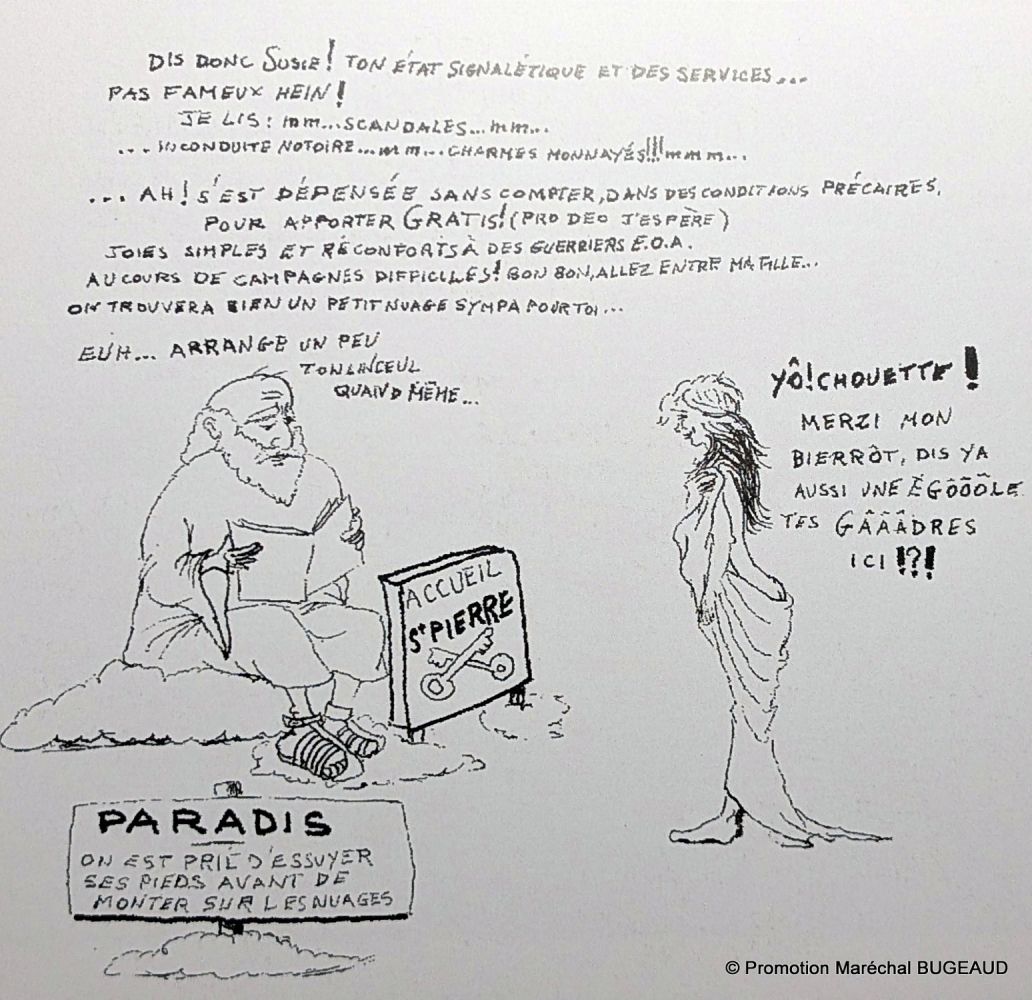 DIS DONC SUSIE! TON ÉTAT SIGNALÉTIQUE ET DES SERVICES...
PAS FAMEUX HEIN!
JE LIS: mm... SCANDALES... mm...
... INCONDUITE NOTOIRE... mm... CHARMES MONNAYÉS!!! mmm...
... AH! S'EST DÉPENSÉE SANS COMPTER, DANS DES CONDITIONS PRÉCAIRES,
POUR APPORTER GRATIS! (PRO DEO J'ESPÈRE)
JOIES SIMPLES ET RÉCONFORTS À DES GUERRIERS E.O.A.
AU COURS DE CAMPAGNES DIFFICILES! BON BON, ALLEZ ENTRE MA FILLE...
ON TROUVERA BIEN UN PETIT NUAGE SYMPA POUR TOI...
EUH... ARRANGE UN PEU
TON LINCEUL
QUAND MÊME...
YÔ! CHOUETTE!
MERZI MON
BIERRÔT, DIS YA
AUSSI UNE ÉGÔÕÕLE
TES GÂÂÂDRES
ICI !?!
ACCUEIL
St PIERRE
PARADIS
ON EST PRIÉ D'ESSUYER
SES PIEDS AVANT DE
MONTER SUR LES NUAGES
© Promotion Maréchal BUGEAUD